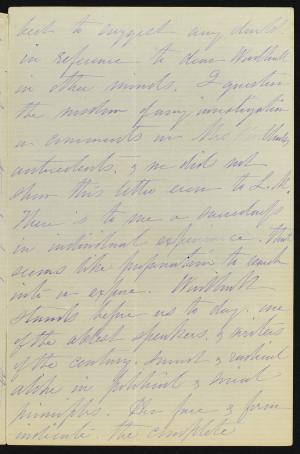 but to suggest any doubt
in reference to dear Woodhull
in other minds. I question
the wisdom of any investigation
or comments on Mrs Woodhull's
antecedents, & we did not
show this letter even to L. M.
There is to me a sacredness
in individual experience that
seems like profanation to search
into or expose. Woodhull
stands before us to day, one
of the ablest speakers & writers
of the century, sound & radical
alike in political & social
principles. Her face & form
indicate the complete